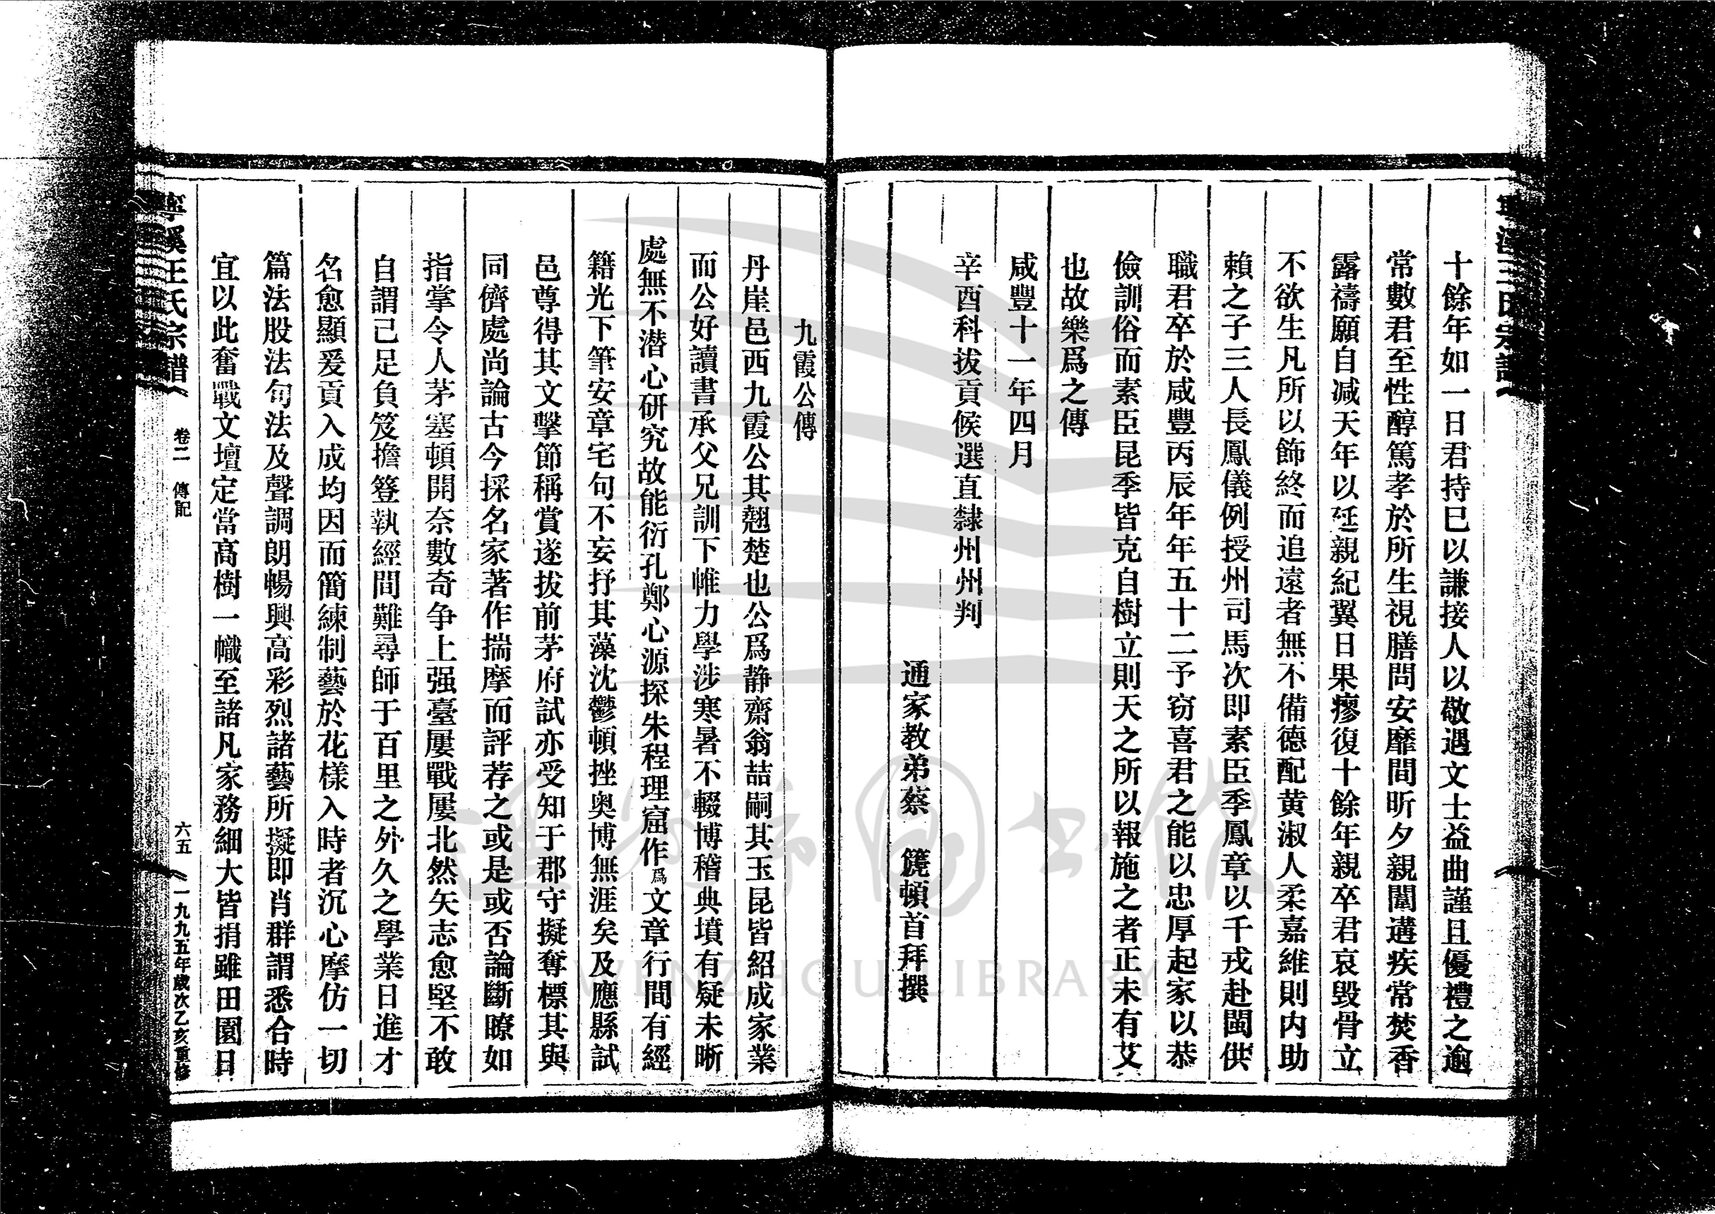 十餘年如一日君持已以謙接人以敬遇文士益曲謹且優禮之逾
常數君至性醇篤孝於所生視膳問安靡間昕夕親闈遘疾常焚香
露禱願自减天年以延親紀翼日果瘳復十餘年親卒君哀毀骨立
不欲生凡所以飾終而追遠者無不備德配黃淑人柔嘉維則內助
賴之子三人長鳳儀例授州司馬次即素臣季鳳章以千戎赴閩供
職君卒於咸豐丙辰年年五十二予窃喜君之能以忠厚起家以恭
儉訓俗而素臣昆季皆克自樹立則天之所以報施之者正未有艾
也故樂爲之傳
咸豐十一年四月
辛酉科拔貢候選直隸州州判
通家教弟蔡 篪頓首拜撰
九霞公傳
丹崖邑西九霞公其翹楚也公爲静齋翁喆嗣其玉昆皆紹成家業
而公好讀書承父兄訓下帷力學涉寒暑不輟博稽典墳有疑未晰
處無不潜心研究故能衍孔鄭心源探朱程理窟作爲文章行間有經
籍光下筆安章宅句不妄抒其藻沈鬱頓挫奥博無涯矣及應縣試
邑尊得其文擊節稱賞遂拔前茅府試亦受知于郡守擬奪標其與
同儕處尚論古今採名家著作揣摩而評荐之或是或否論斷瞭如
指掌令人茅塞頓開奈數奇争上强臺屢戰屢北然矢志愈堅不敢
自謂已足負笈擔簦執經間難尋師于百里之外久之學業日進才
名愈顯爰貢入成均因而簡練制藝於花樣入時者沉心摩仿一切
篇法股法句法及聲調朗暢興高彩烈諸藝所擬即肖群謂悉合時
宜以此奮戰文壇定當高樹一幟至諸凡家務細大皆捐雖田園日
寧溪王氏宗譜
卷二 傳記
六五
一九九五年歲次乙亥重修
WENZHOU LIBRARY